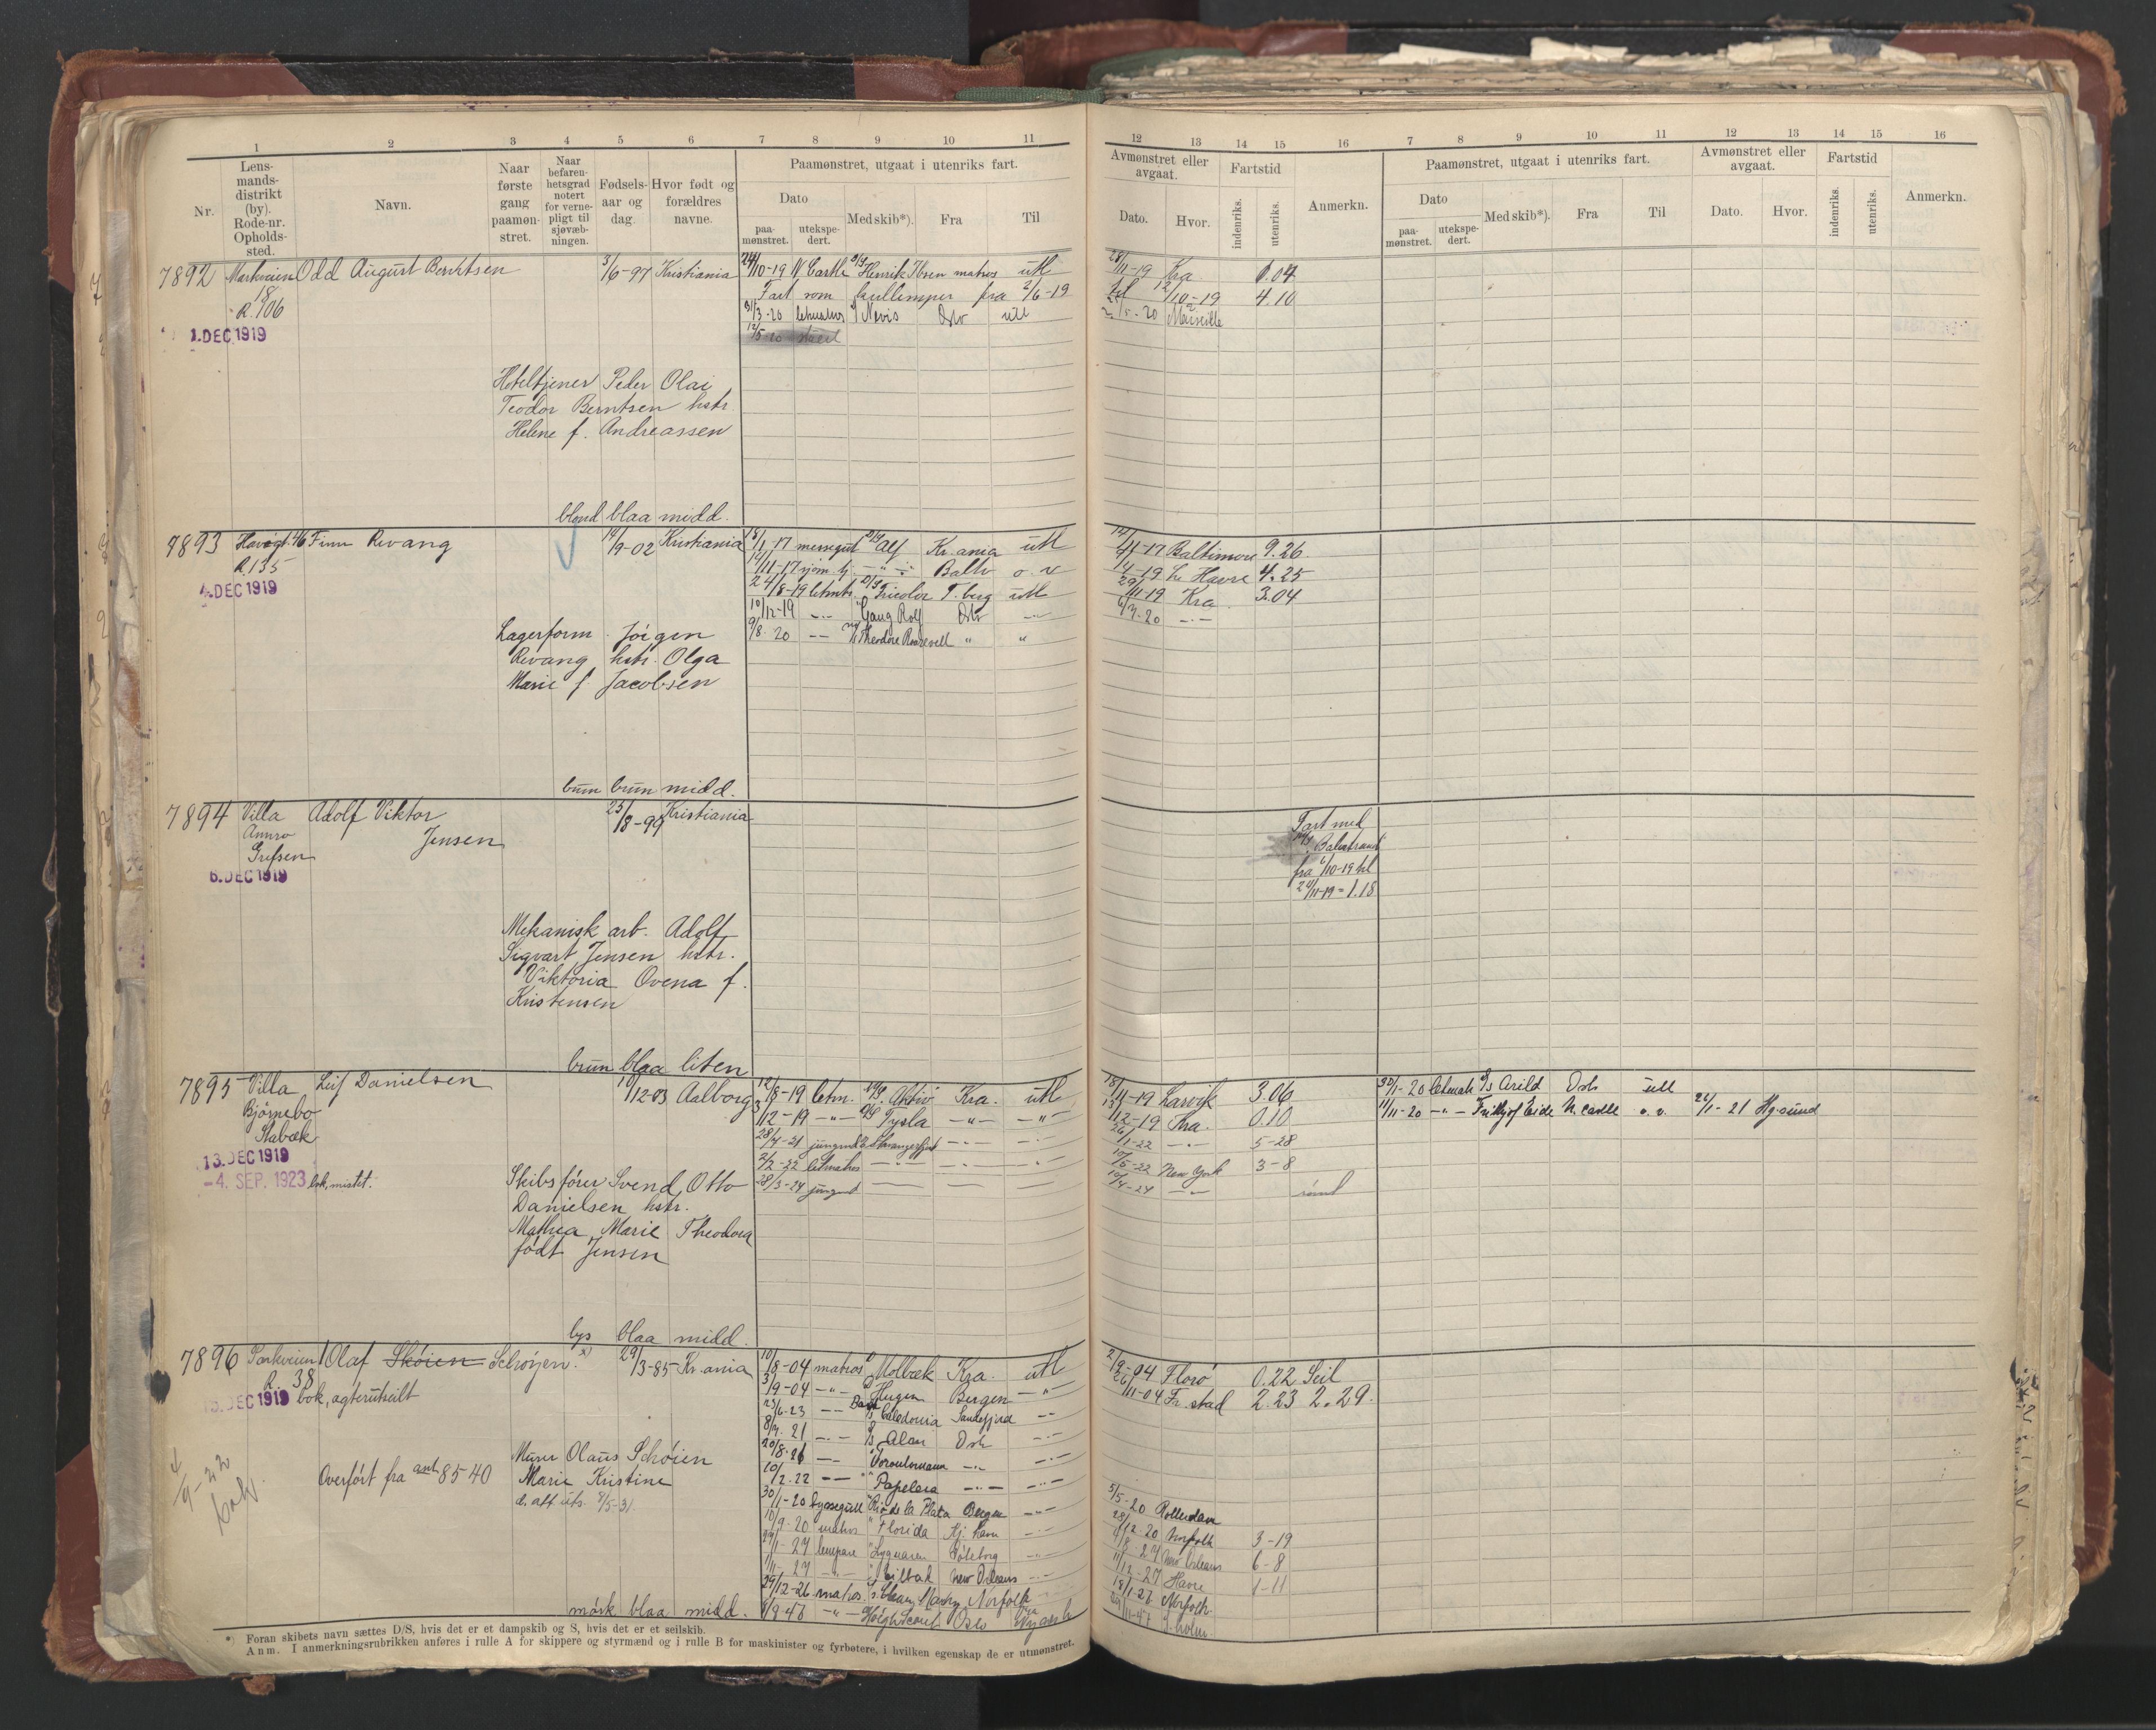 1 2 3 4 5 6 7 8 9 10 11
Nr.
Lens-
mands-
distrikt
(by).
Rode-nr.
Opholds-
sted.
Navn.
Naar
første
gang
paamøn-
stret.
Naar
befaren-
hetsgrad
notert
for verne-
pligt til
sjøvæb-
ningen.
Fødsels-
aar og
dag.
Hvor født og
forældres
navne.
Paamønstret, utgaat i utenriks fart.
Dato
paa-
mønstret.
utekspe-
dert.
Med skib*).
Fra
Til
7892 Markveien Odd August Berntsen 3/6-97 Kristiania 24/10-19 N. Castle D/S Henrik Ibsen matros utl
18
R. 106
Fart som fra 2/6-19
31/3-20 letmatros Nevis Oslo utl
1. DEC 1919
12/5-20
Hoteltjener Peder Olai
Teodor Berntsen hstr.
Helene f. Andreassen
blond blaa midd.
7893 46 Finn Revang 14/9-02 Kristiania 18/1-17 messegut D/S Alf Kr.ania utl
R 135
14/11-17 Balti
24/8-19 letmtr. D/S Tricolor T.berg utl
4. DEC 1919
10/12-19 -"- Gang Rolf Oslo -"-
9/8-20 -"- Theodore Roosevelt " "
Lagerform. Jørgen
Revang hstr. Olga
Marie f. Jacobsen
brun brun midd.
7894 Villa Adolf Viktor 23/8-99 Kristiania
Jensen
Grefsen
6. DEC 1919
Mekanisk arb. Adolf
Sigvart Jensen hstr.
Viktoria Ovena f.
Kristensen
brun blaa liten
7895 Villa Leif Danielsen 10/12-03 Aalborg 12/8-19 letm. Aktiv Kra. utl
Bjørnebo
Stabæk
3/12-19 -"- D/S Tysla -"- -"-
28/4-21 jungm. Stavangerfjord -"- -"-
13. DEC 1919
2/2-22 letmatros -"- -"- -"-
-4. SEP. 1923 bok, mistet.
28/3-24 jungm
Skibsfører Svend Otto
Danielsen hstr.
Mathea Marie Theodora
født Jensen
lys blaa midd.
7896 Parkveien 1 Olaf Skøien Schrøyen. x) 29/3-85 Kr.ania 10/8-04 matros Molbæk Kra. utl
R. 38
3/9-04 -"- Heigen Bergen -"-
DEC 1919 bok, agterutseilt
23/6-23 -"- Caledonia Sandefjord -"-
8/7-21 -"- Alan Oslo -"-
20/8-26 -"-
Overført fra ant 8540
10/2-22 -"- Papelera -"- -"-
4/9-22
bok.
30/1-20 byssegutt Rio de la Plata Bergen -"-
10/9-20 matros Florida Kj. havn -"-
27 Lygnaren Gøteborg -"-
27 -"- New Orleans -"-
29/12-26 matros Norfolk
9-48 -"- Høegh Scout Oslo
Murer Olaus Schøien
Marie Kristine
d. att. uts. 9/5-31.
mørk blaa midd.
*) Foran skibets navn sættes D/S, hvis det er et dampskib og S, hvis det er et seilskib.
Anm. I anmerkningsrubrikken anføres i rulle A for skippere og styrmænd og i rulle B for maskinister og fyrbøtere, i hvilken egenskap de er utmønstret.
12 13 14 15 16 7 8 9 10 11 12 13 14 15 16
Avmønstret eller
avgaat.
Fartstid
Dato.
Hvor.
indenriks.
utenriks.
Anmerkn.
Paamønstret, utgaat i utenriks fart.
Dato
paa-
mønstret.
utekspe-
dert.
Med skib*).
Fra
Til
Avmønstret eller
avgaat.
Fartstid
Dato.
Hvor.
indenriks.
utenriks.
Anmerkn.
28/11-19 Kra 1.04
til 12/10-19 4.10
/5-20 Marseille
Baltimore 9.26
/4-19 Le Havre 4.25
29/11-19 Kra. 3.04
6/7-20 -"-
Fart med
Balestrand
fra 6/10-19 til
24/11-19 = 1.18
18/11-19 Larvik 3.06
30/1-20 letmatr. D/S Arild Oslo utl
13/12-19 Kra. 0.10
11/11-20 -"- Fridtjof Eide N. Castle o. v. 24/1-21 Hgsund
26/1-22 -"- 5-28
10/5-22 New York 3-8
10/4-24 -"-
2/9-04 Florø 0.22 Seil
26/11-04 Fr. stad 2.23 2.29.
5/5-20 Rotterdam
28/12-20 Norfolk 3-19
/8-27 New Orleans 6-8
11/12-27 Havre 1-11
18/1-27 Norfolk